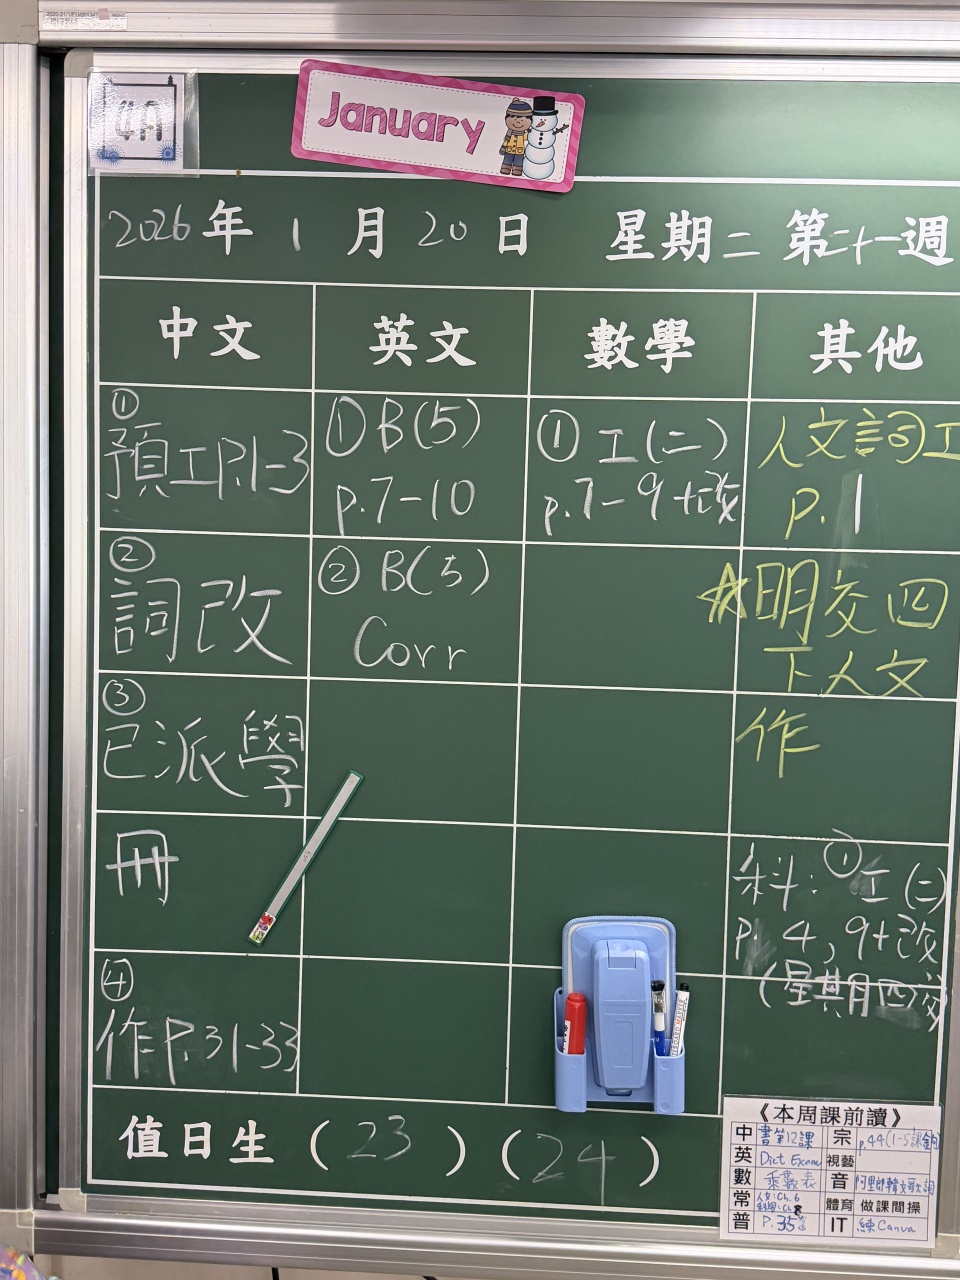 4A
January
2026年1月20日 星期二 第二十一週
中文 英文 數學 其他
①
預工P.1-3
②
詞改
③
已派學
冊
④
作P.31-33
① B(5)
p.7-10
② B(5)
Corr
① 工(二)
p.7-9+改
人文詞工
P.1
☆明交四
下人文
作
科：①工(二)
p. 4, 9+改
(星其月四交)
值日生 (23) (24)
《本周課前讀》
中 書第12課 宗 p.44(1-5課
英 Dict Exam 視藝
數 乘數表 音 阿里郎韓文歌詞
常 人文:Ch.6 體育 做課間操
科學:Ch.8
普 P.35 IT 練Canva